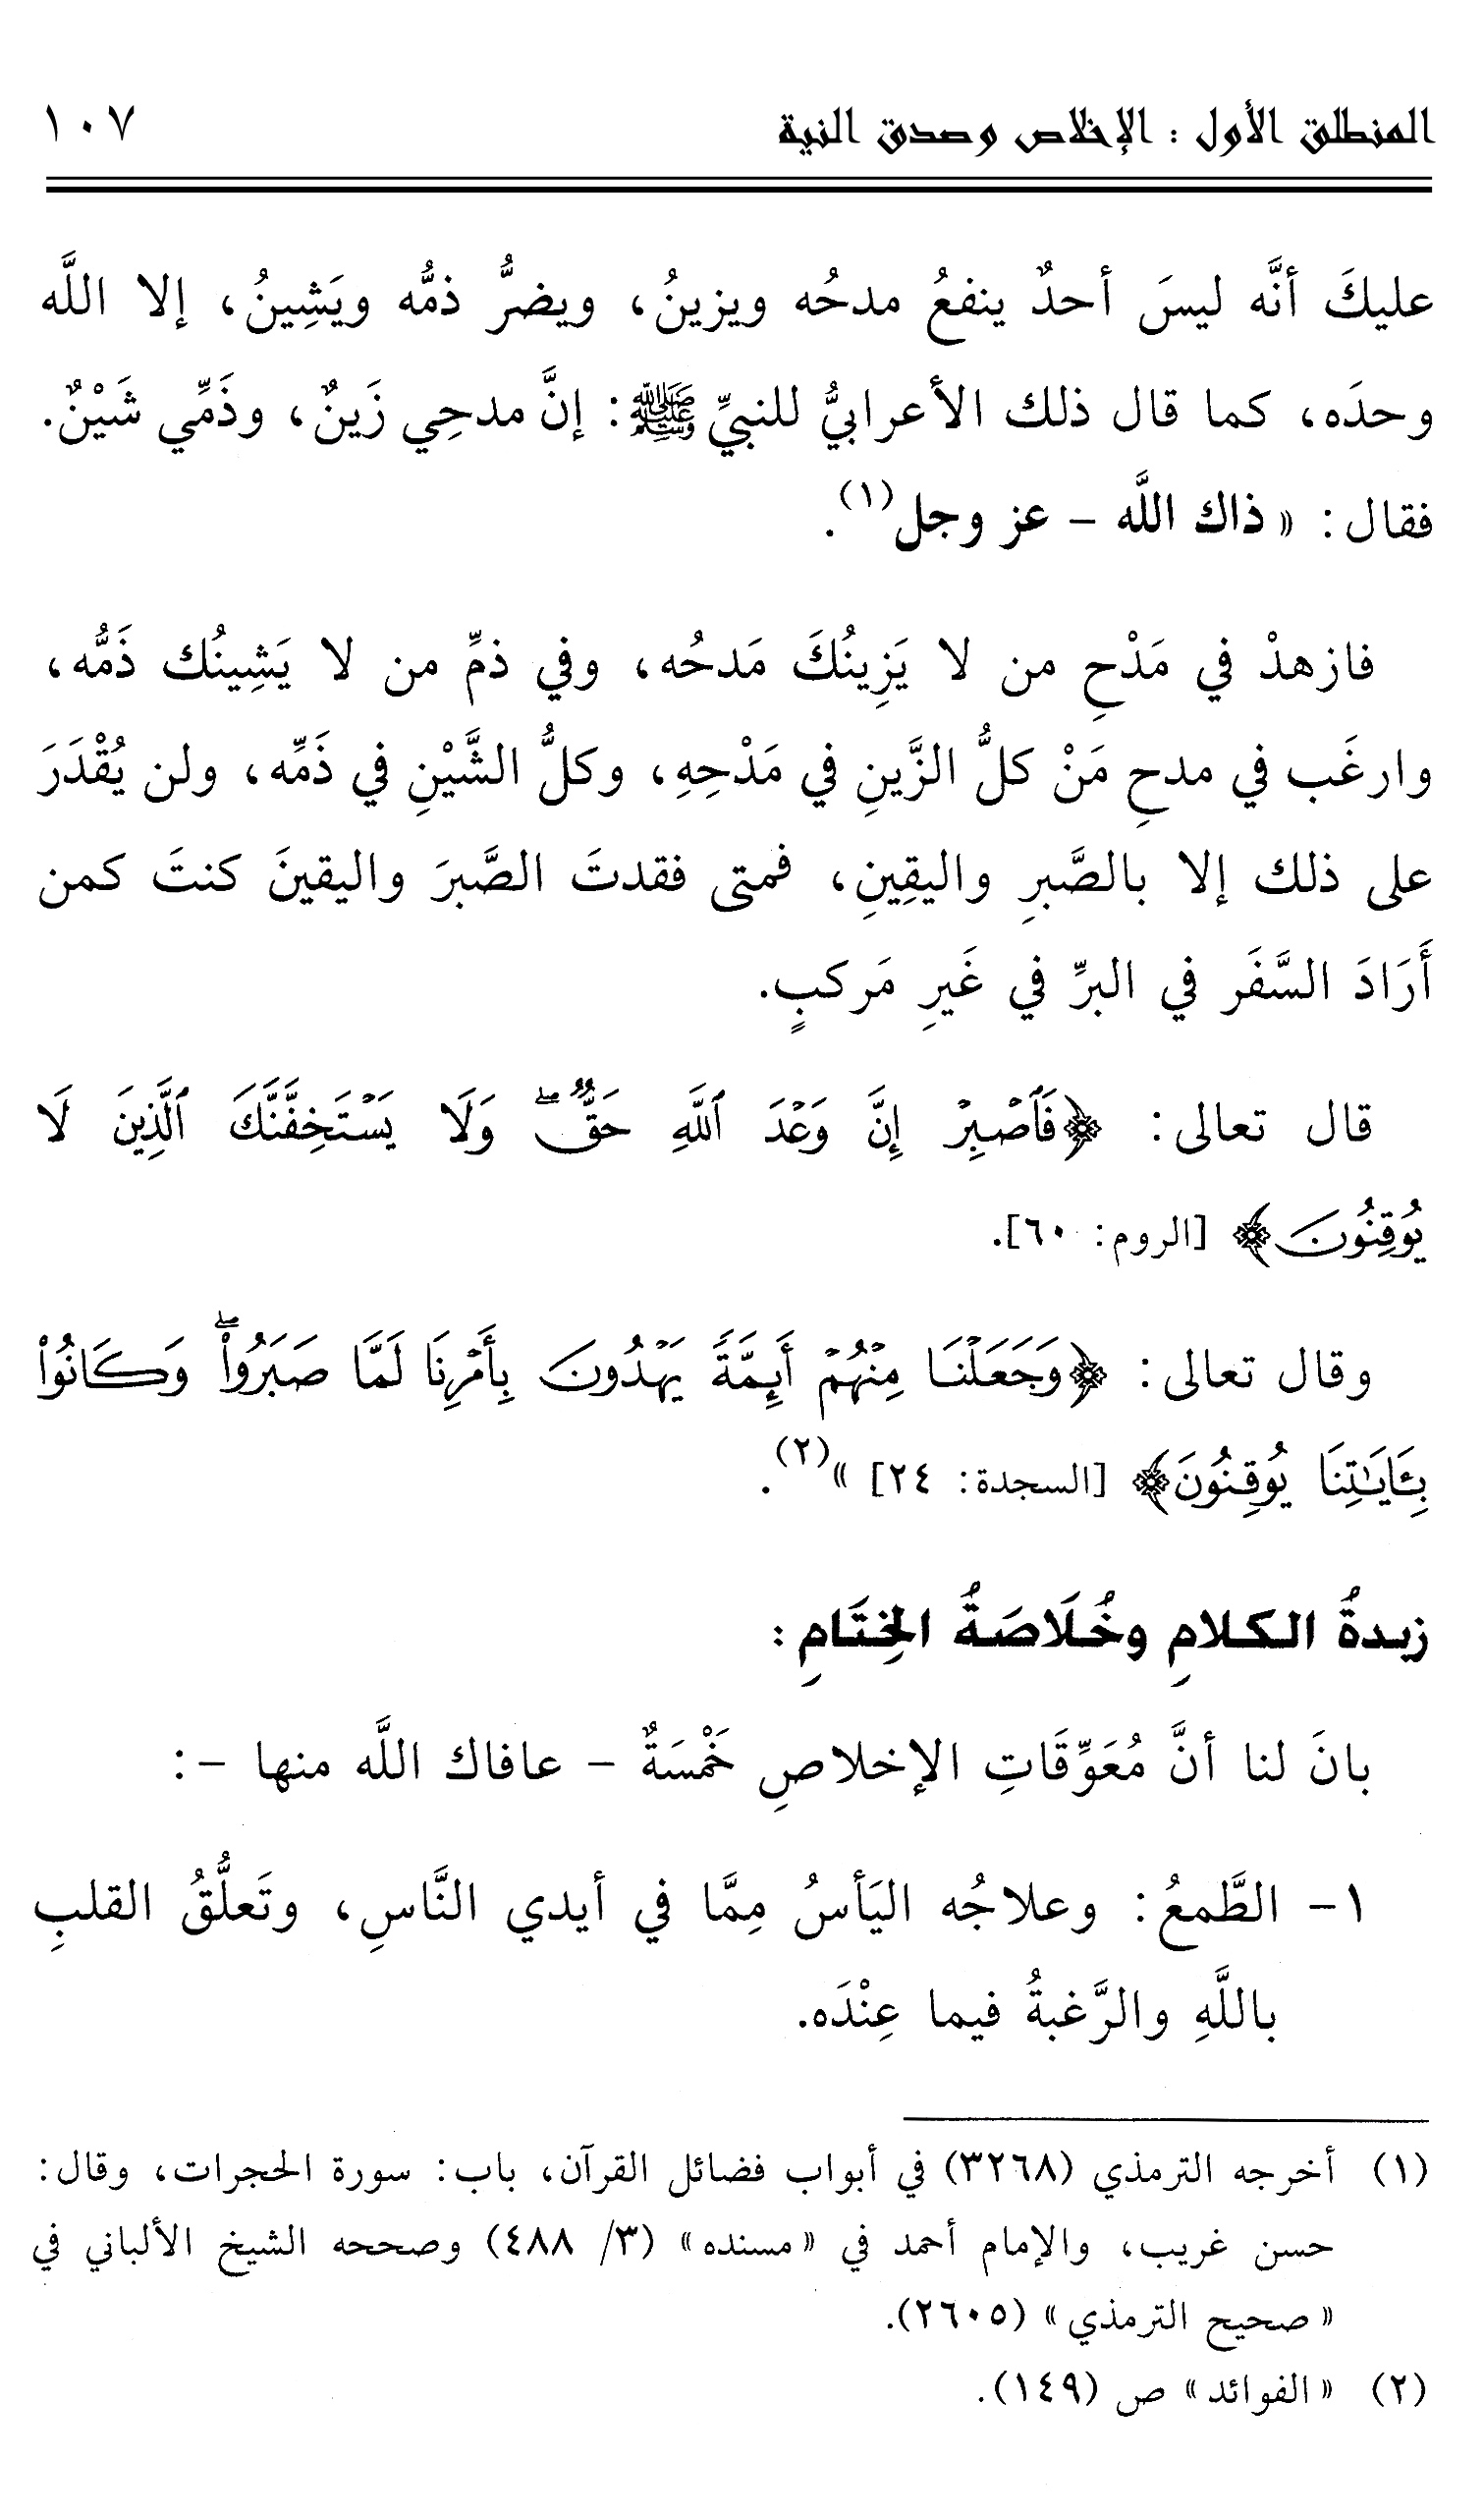 المنطلق الأول : الإخلاص وصدق النية ١٠٧
عليكَ أنَّه ليسَ أحدٌ ينفعُ مدحُه ويزينُ، ويضرُّ ذمُّه ويَشِينُ، إلا اللَّه
وحدَه، كما قال ذلك الأعرابيُّ للنبيِّ ﷺ: إنَّ مدحِي زَينٌ، وذَمِّي شَيْنٌ.
فقال: « ذاك اللَّه – عز وجل(١).
فازهدْ في مَدْحِ من لا يَزِينُكَ مَدحُه، وفي ذمِّ من لا يَشِينُك ذَمُّه،
وارغَب في مدحِ مَنْ كلُّ الزَّينِ في مَدْحِهِ، وكلُّ الشَّيْنِ في ذَمِّه، ولن يُقْدَرَ
على ذلك إلا بالصَّبرِ واليقِينِ، فمتى فقدتَ الصَّبرَ واليقينَ كنتَ كمن
أَرَادَ السَّفَر في البرِّ في غَيرِ مَركبٍ.
قال تعالى: ﴿فَٱصۡبِرۡ إِنَّ وَعۡدَ ٱللَّهِ حَقّٞۖ وَلَا يَسۡتَخِفَّنَّكَ ٱلَّذِينَ لَا
يُوقِنُونَ﴾ [الروم: ٦٠].
وقال تعالى: ﴿وَجَعَلۡنَا مِنۡهُمۡ أَئِمَّةٗ يَهۡدُونَ بِأَمۡرِنَا لَمَّا صَبَرُواْۖ وَكَانُواْ
بِـَٔايَٰتِنَا يُوقِنُونَ﴾ [السجدة: ٢٤] »(٢).
زبدةُ الكلامِ وخُلَاصَةُ الخِتَامِ :
بانَ لنا أنَّ مُعَوِّقَاتِ الإخلاصِ خَمْسَةٌ – عافاك اللَّه منها –:
١– الطَّمعُ: وعلاجُه اليَأسُ مِمَّا في أيدي النَّاسِ، وتَعلُّقُ القلبِ
باللَّهِ والرَّغبةُ فيما عِنْدَه.
(١) أخرجه الترمذي (٣٢٦٨) في أبواب فضائل القرآن، باب: سورة الحجرات، وقال:
حسن غريب، والإمام أحمد في «مسنده» (٣/ ٤٨٨) وصححه الشيخ الألباني في
«صحيح الترمذي» (٢٦٠٥).
(٢) «الفوائد» ص (١٤٩).